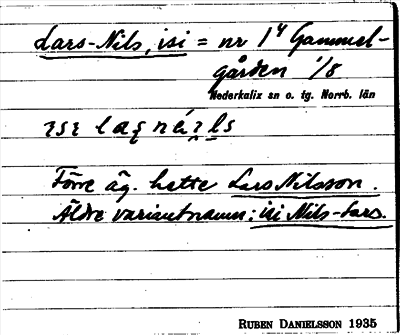 Lars-Nils, isi = nr 1⁴ Gammel-
gården 1/8
Nederkalix sn o. tg. Norrb. län
Förre äg. hette Lars Nilsson.
Äldre variantnamn: isi Nils-Lars.
RUBEN DANIELSSON 1935